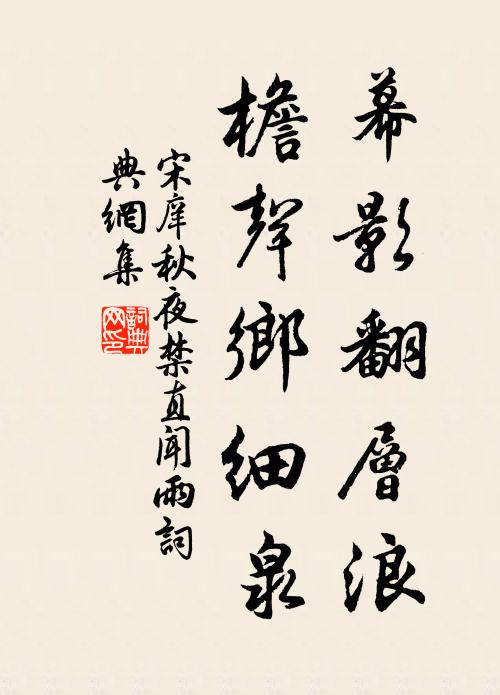 幕影翻層浪
檐聲鄉細泉
宋庠秋夜禁直聞雨詞
典網集
詞典网印